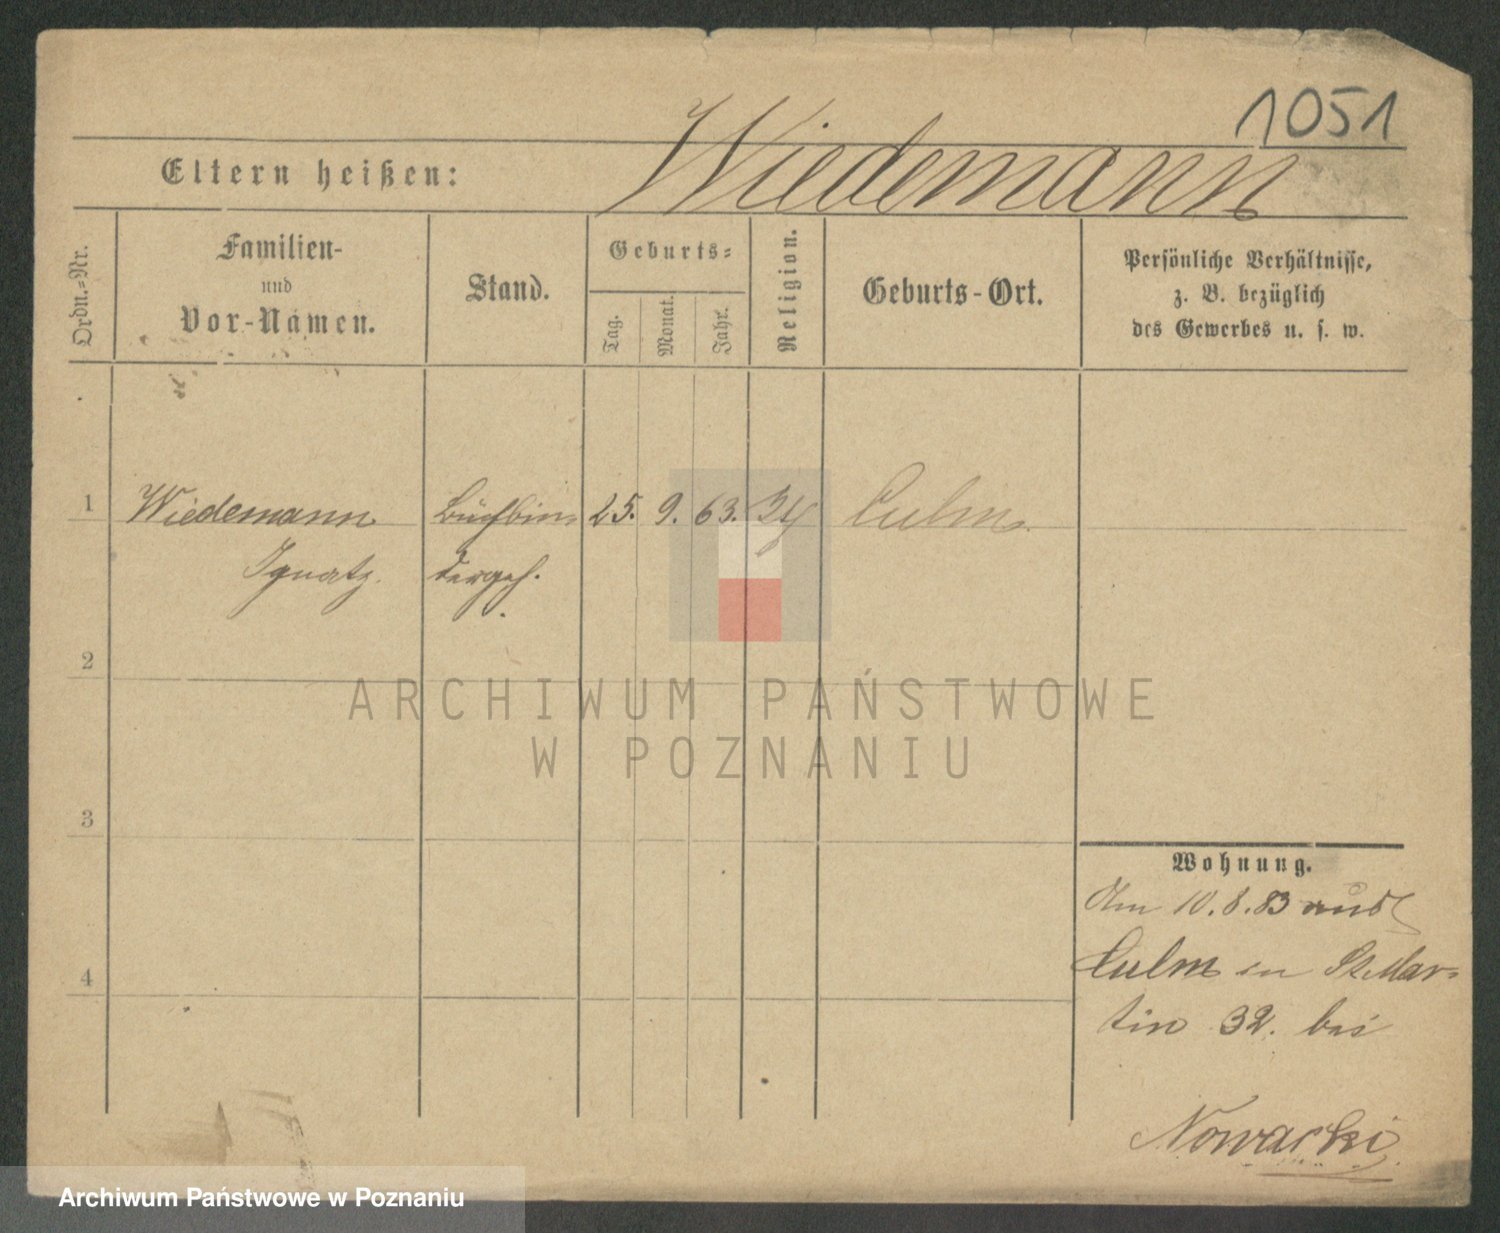 1051
Eltern heißen: Wiedemann
Ordn.-Nr.
Familien-
und
Vor-Namen.
Stand.
Geburts-
Tag.
Monat.
Jahr.
Religion.
Geburts-Ort.
Persönliche Verhältnisse,
z. B. bezüglich
des Gewerbes u. s. w.
1 Wiedemann Buchbin- 25. 9. 63. Culm
Ignatz. dergeh.
2
ARCHIWUM PAŃSTWOWE
W POZNANIU
3
Wohnung.
Am 10.8.83 aus
Culm in St Mar-
tin 32. bei
4
Nowacki
Archiwum Państwowe w Poznaniu